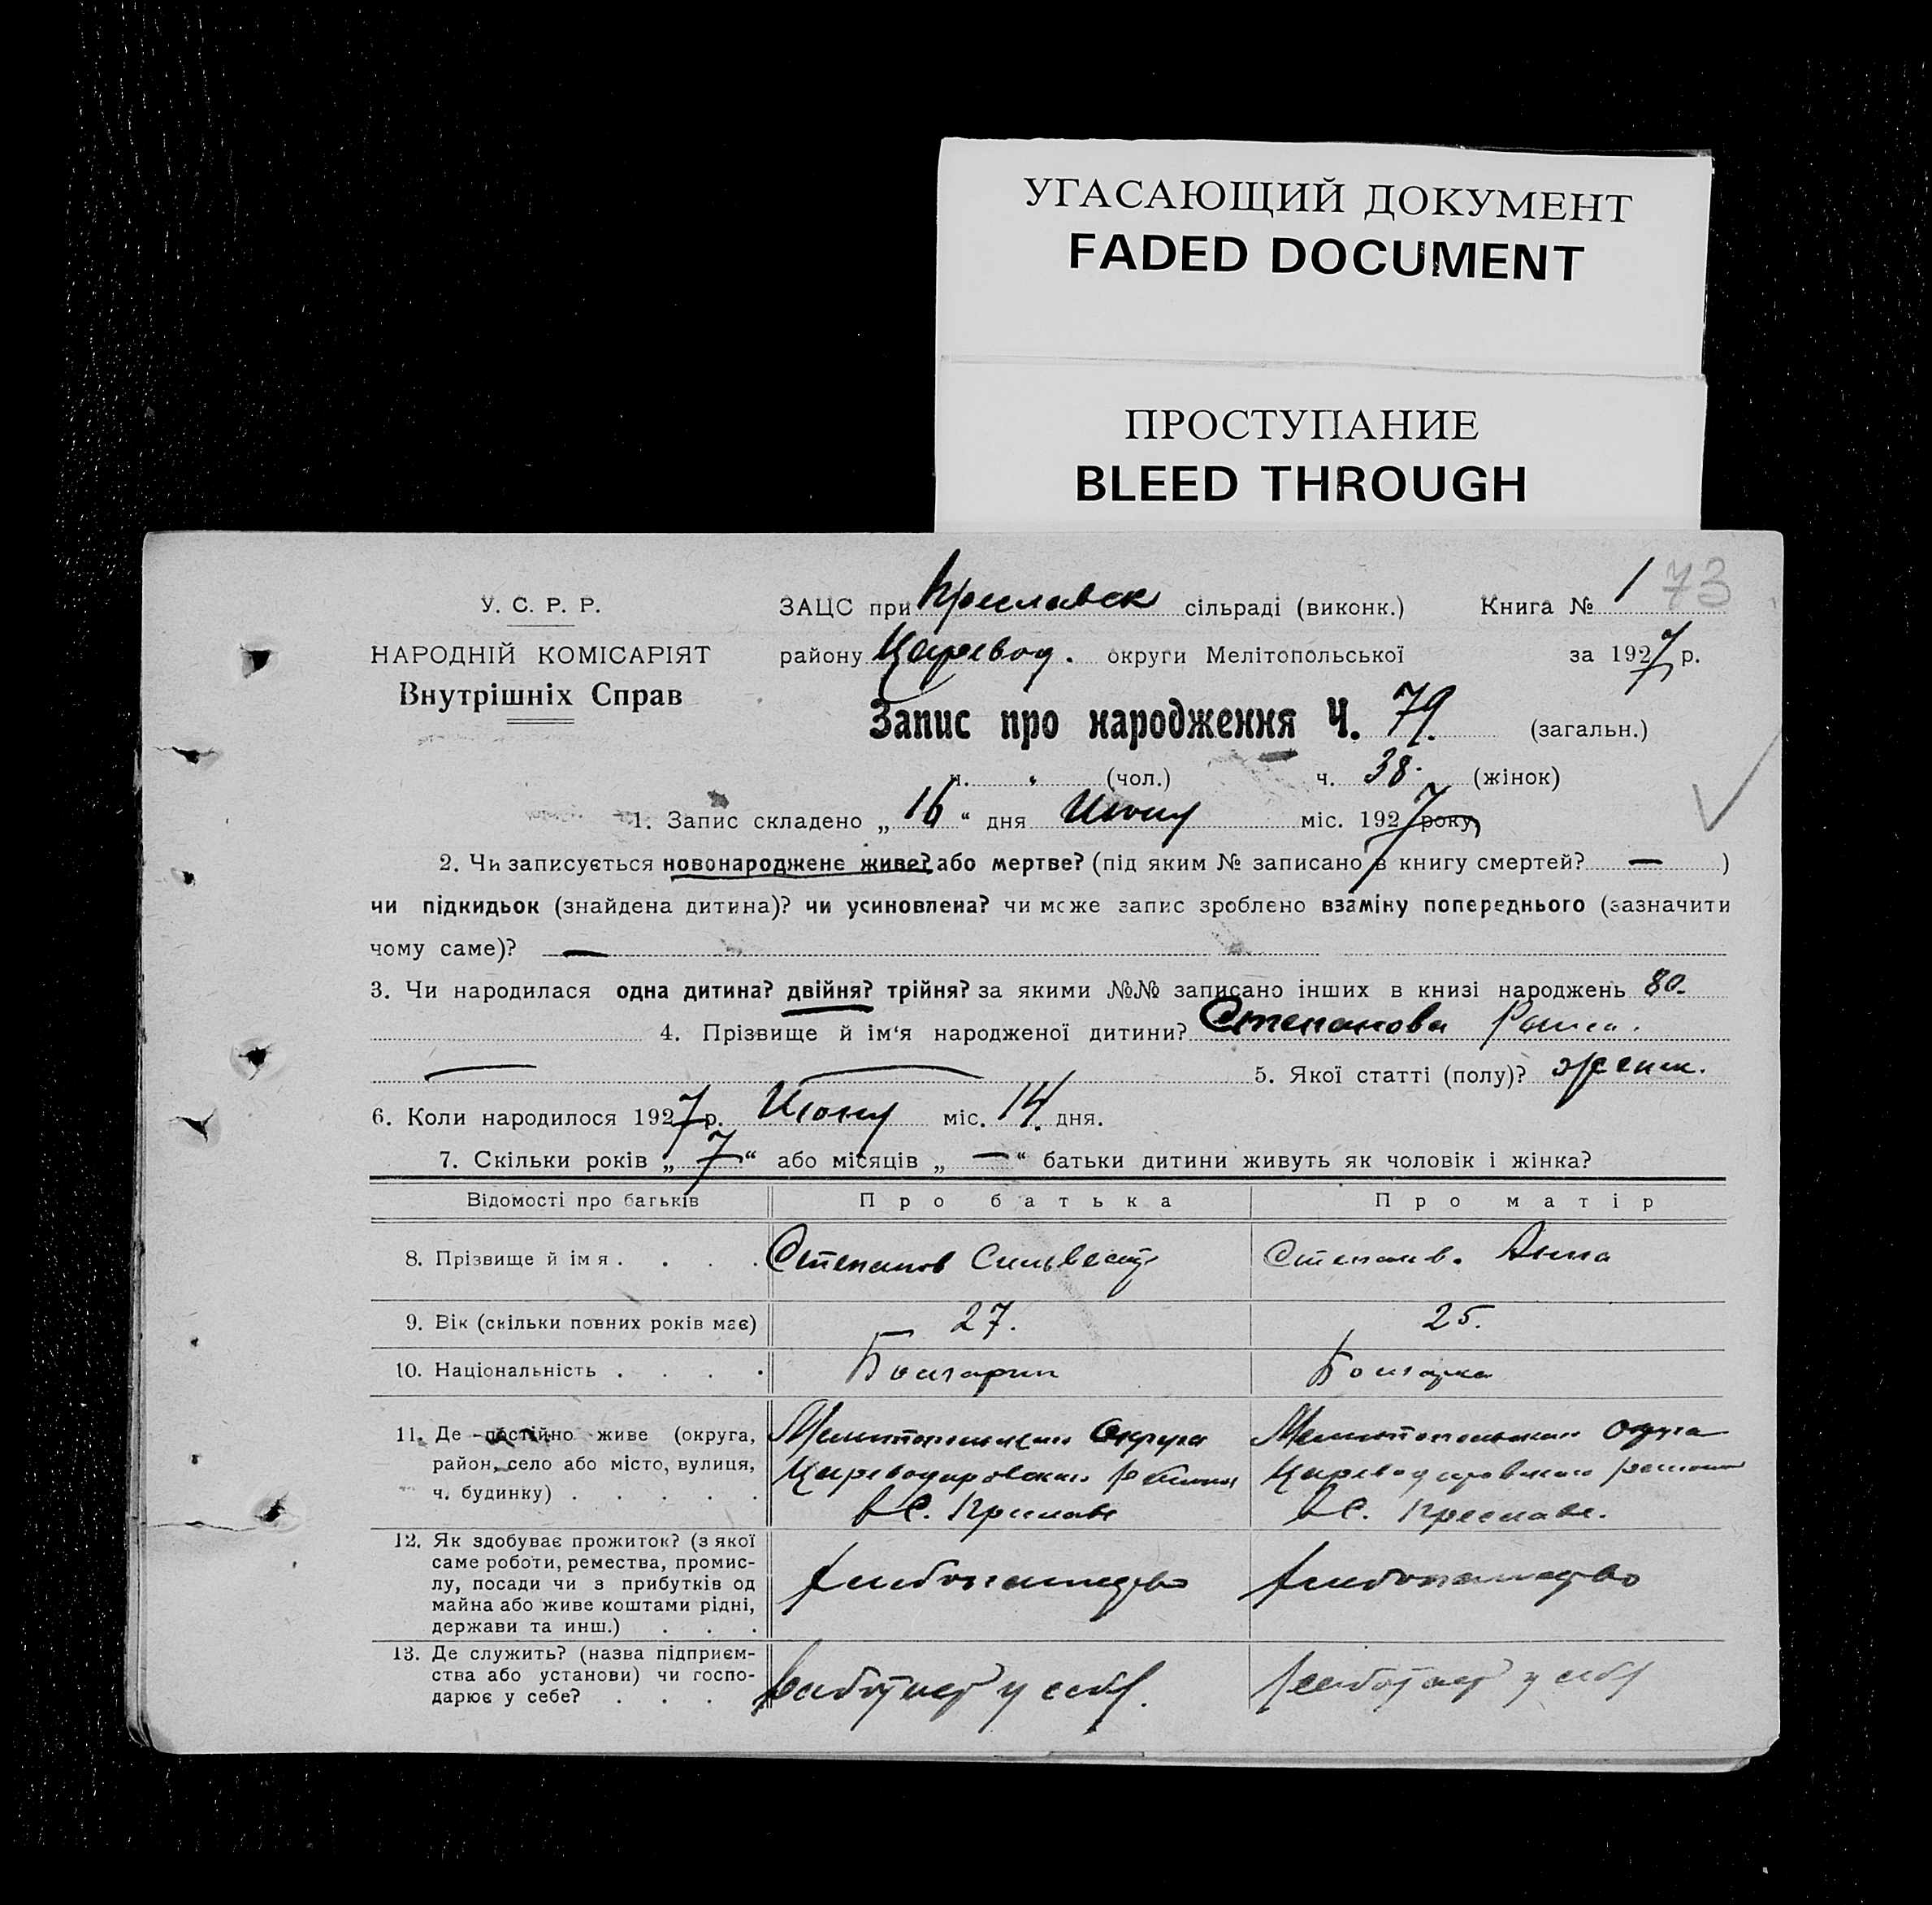 УГАСАЮЩИЙ ДОКУМЕНТ
FADED DOCUMENT
ПРОСТУПАНИЕ
BLEED THROUGH
У. С. Р. Р.
НАРОДНІЙ КОМІСАРІЯТ
Внутрішніх Справ
ЗАЦС при Преславск сільраді (виконк.) Книга № 1 73
району Царевод. округи Мелітопольської за 1927 р.
Запис про народження Ч. 79. (загальн.)
ч. " (чол.) ч. 38. (жінок)
1. Запис складено „ 16 “ дня Июня міс. 1927 року
2. Чи записується новонароджене живе? або мертве? (під яким № записано в книгу смертей? — )
чи підкидьок (знайдена дитина)? чи усиновлена? чи може запис зроблено взаміну попереднього (зазначити
чому саме)? —
3. Чи народилася одна дитина? двійня? трійня? за якими №№ записано інших в книзі народжень 80.
4. Прізвище й ім‘я народженої дитини? Степанова Раиса.
5. Якої статті (полу)? женск.
6. Коли народилося 1927 р. Июня міс. 14. дня.
7. Скільки років „ 7 “ або місяців „ — “ батьки дитини живуть як чоловік і жінка?
Відомості про батьків Про батька Про матір
8. Прізвище й ім я . . . . Степанов Сильвестр Степанов. Анна
9. Вік (скільки повних років має) 27. 25.
10. Національність . . . . Болгарин Болгарка
11. Де постійно живе (округа, Мелитопольской Округа Мелитопольской Округа
район, село або місто, вулиця, Цареводаровского района Цареводаровского района
ч. будинку) . . . . . в С. Преславе в С. Преславе.
12. Як здобуває прожиток? (з якої
саме роботи, ремества, промис-
лу, посади чи з прибутків од хлебопашество хлебопашество
майна або живе коштами рідні,
держави та инш.) . . .
13. Де служить? (назва підприєм-
ства або установи) чи госпо- работает у себя. работает у себя
дарює у себе? . . . .